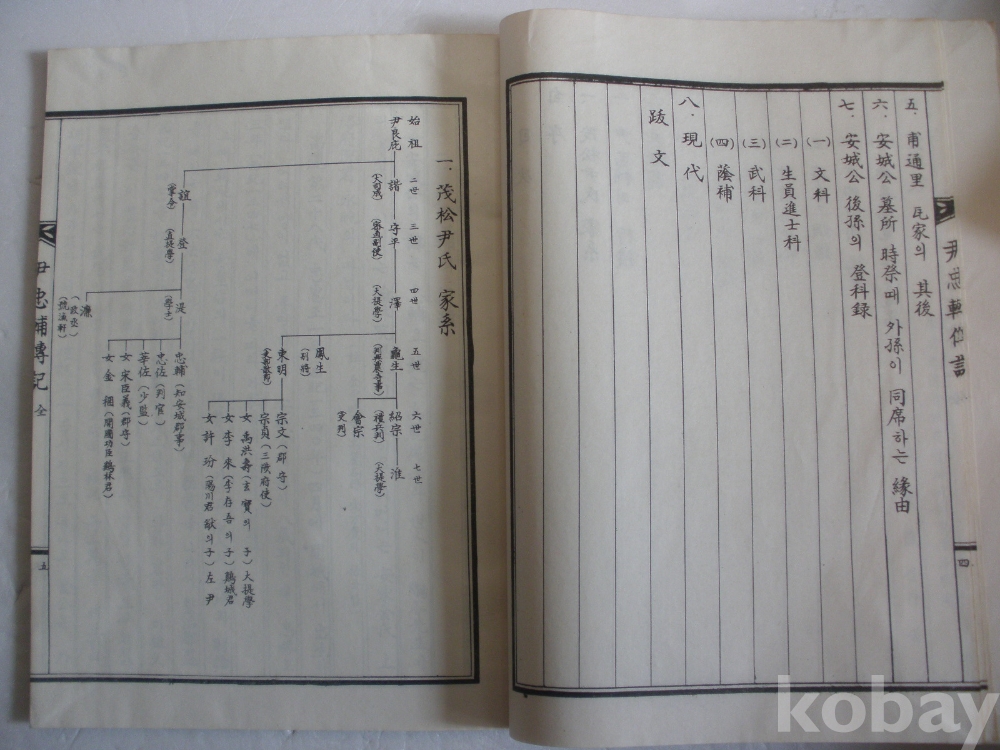 五. 甫通里 瓦家의 其後
六. 安城公 墓所 時祭때 外孫이 同席하는 緣由
七. 安城公 後孫의 登科録
(一) 文科
(二) 生員進士科
(三) 武科
(四) 蔭補
八. 現代
跋文
四
一. 茂松尹氏 家系
始祖 二世 三世 四世 五世 六世 七世
尹良庇
諧 (大司成)
守平
澤 (大提學)
龜生
紹宗
淮 (大提學)
會宗
鳳生
東明
宗文 (郡守)
宗貞 (三陟府使)
女 禹洪壽 (玄寶의 子) 大提學
女 李來 (李存吾의 子) 鷄城君
女 許 (陽川君 의 子) 左尹
誼
登 (直提學)
湜 (學士)
忠輔 (知安城郡事)
忠佐 (判官)
華佐 (少監)
女 宋臣義 (郡守)
女 金稇 (開國功臣 鷄林君)
尹忠補傳記 全
五
kobay